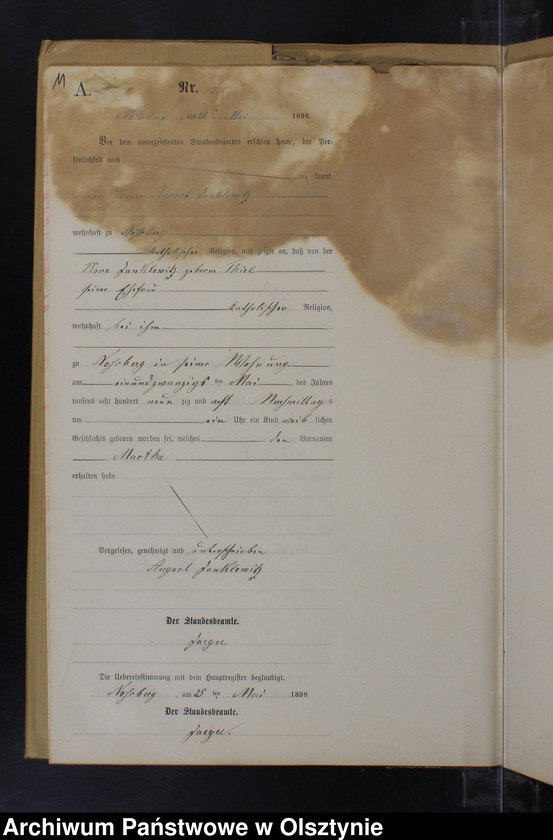 M
A.
Nr.
am 25 ten Mai 1898.
Vor dem unterzeichneten Standesbeamten erschien heute, der Per-
sönlichkeit nach
kannt,
August
wohnhaft zu
katholischer Religion, und zeigte an, daß von der
geborene Thiel
seiner Ehefrau
katholischer Religion,
wohnhaft bei ihm
zu in seiner Wohnung
am einundzwanzigs ten Mai des Jahres
tausend acht hundert neun zig und acht Nachmittags
um ein Uhr ein Kind weib lichen
Geschlechts geboren worden sei, welches den Vornamen
Martha
erhalten habe
Vorgelesen, genehmigt und unterschrieben
August
Der Standesbeamte.
Jaeger
Die Uebereinstimmung mit dem Hauptregister beglaubigt.
am 25 ten Mai 1898
Der Standesbeamte.
Jaeger.
Archiwum Państwowe w Olsztynie